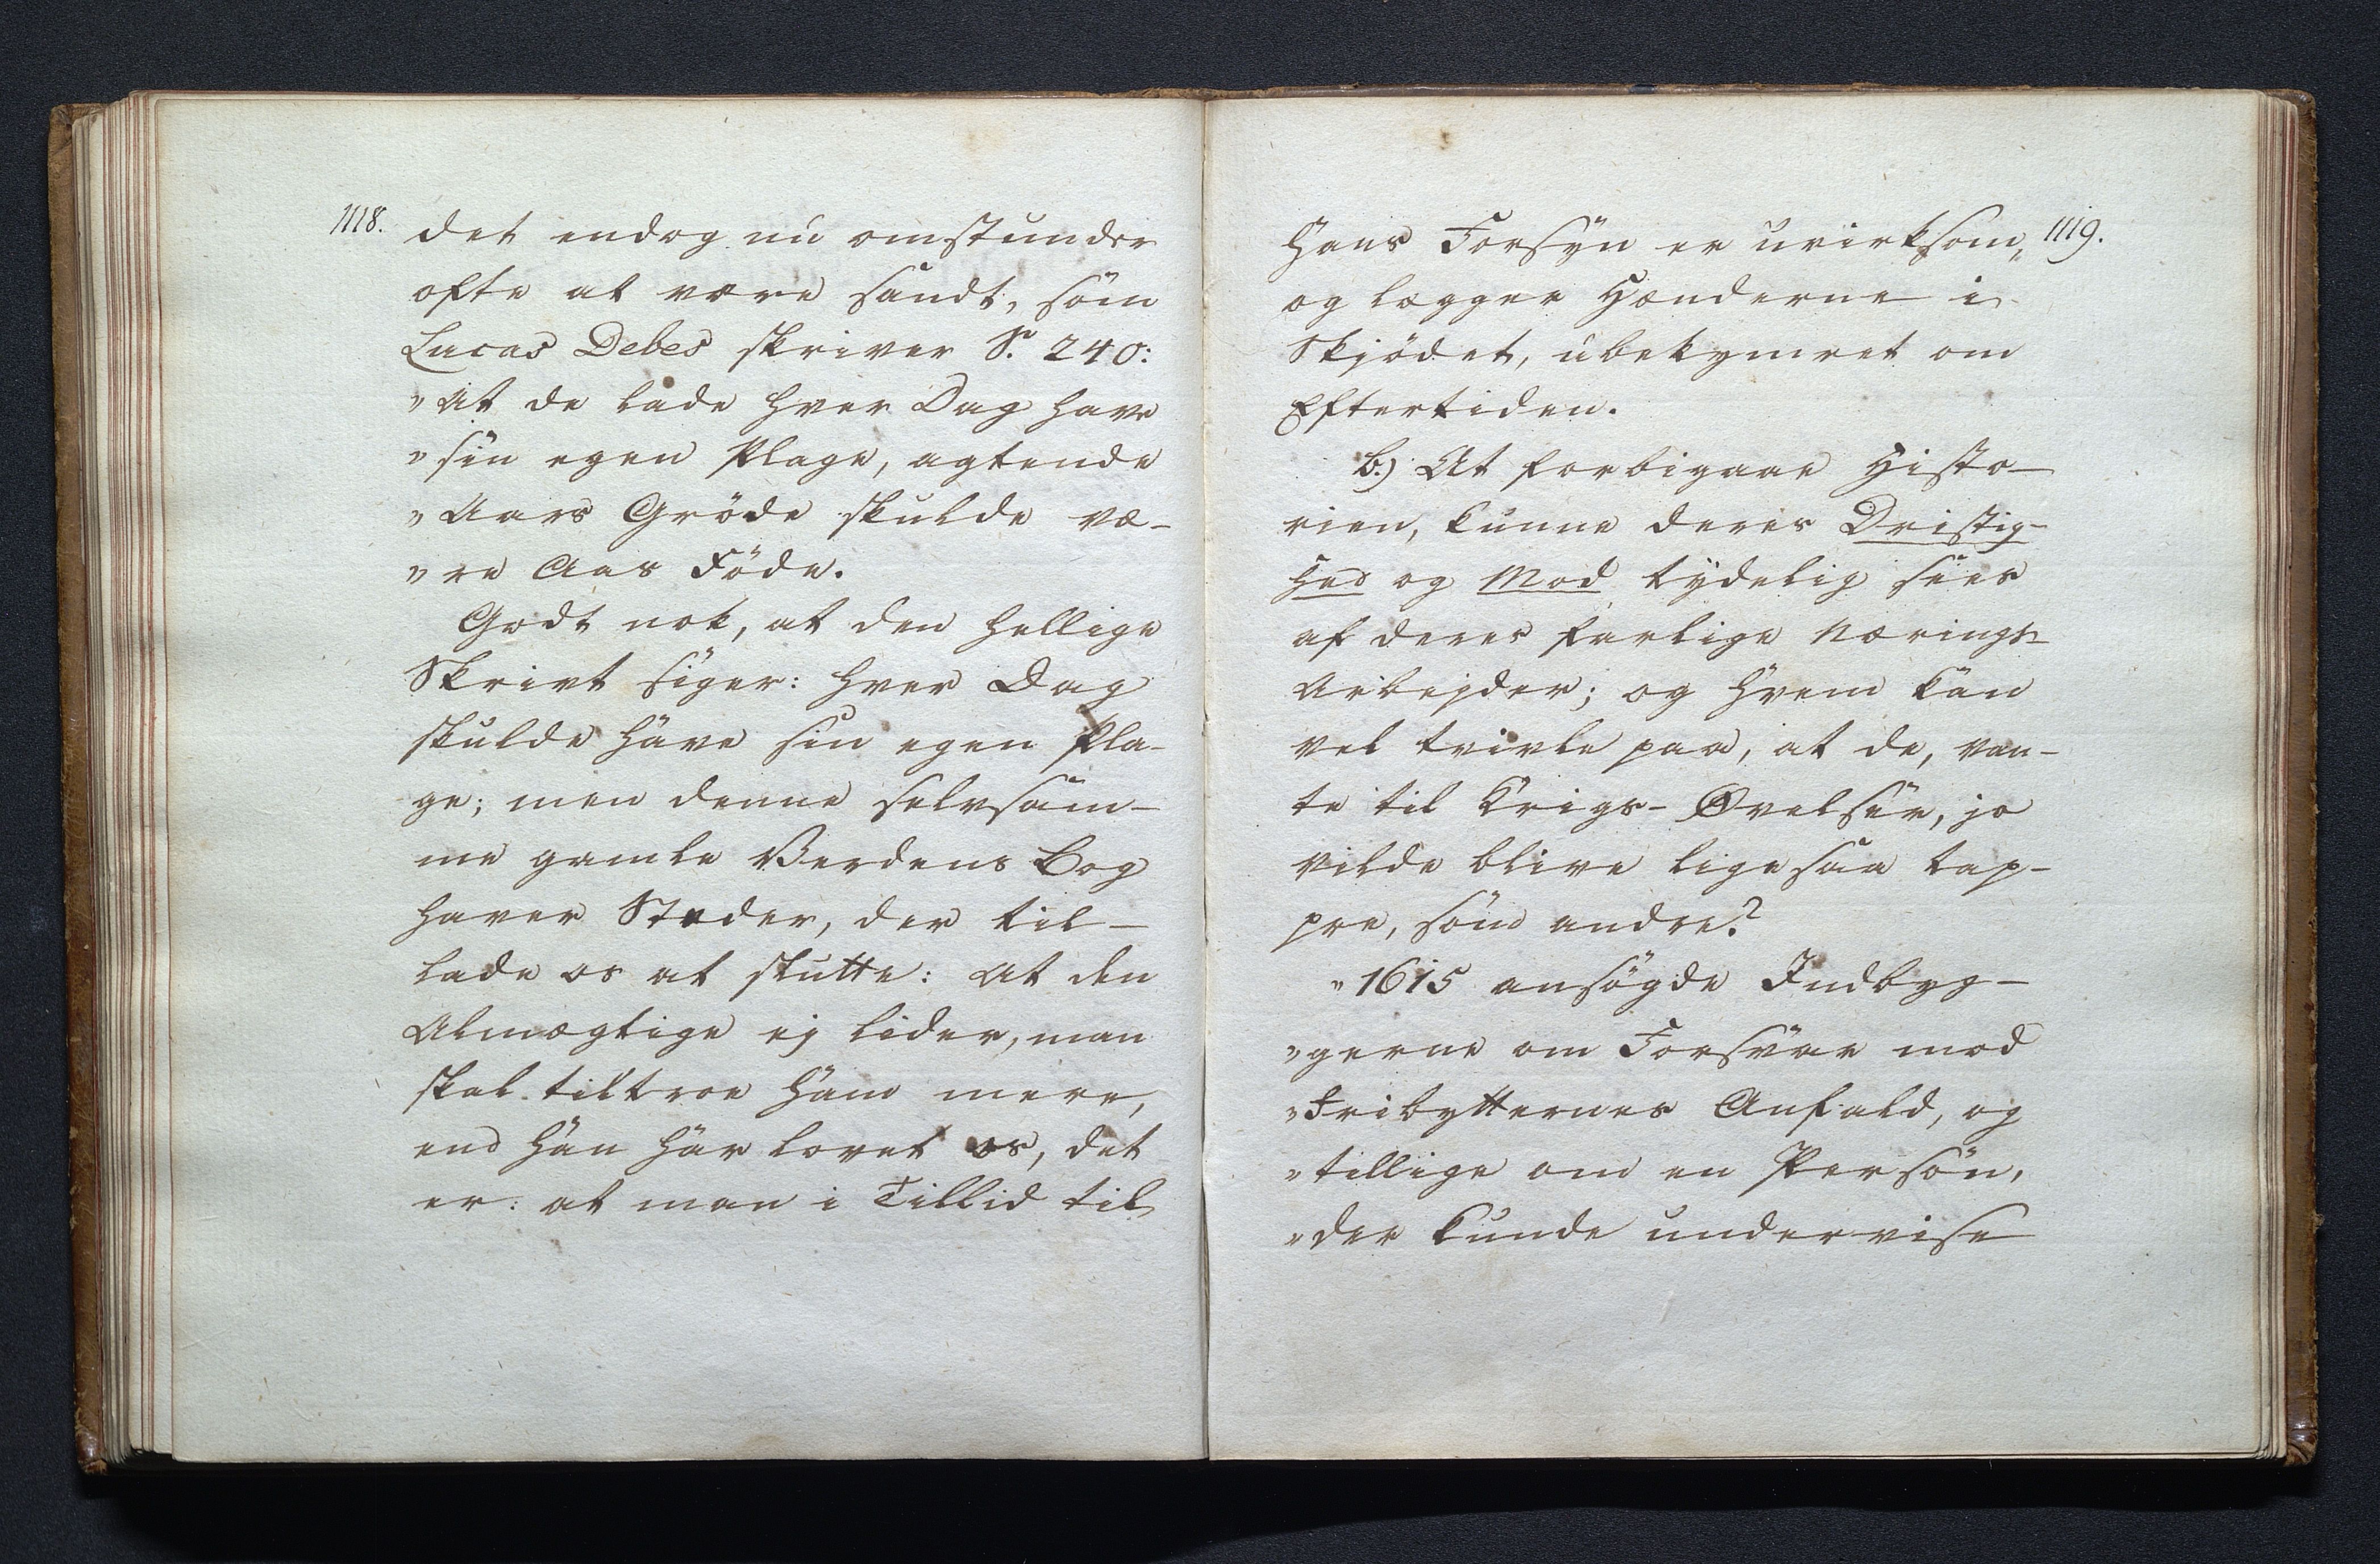 1118.
det endog nu omstunder
ofte at være sandt, som
Lucas Debes skriver S. 240:
"At de lade hver Dag have
"sin egen Plage, agtende
"Aars Gröde skulde væ-
"re Aas Föde.
Godt nok, at den hellige
Skrivt siger: hver Dag
skulde have sin egen Pla-
ge; men denne selvsam-
me gamle Verdens Bog
haver Stæder, der til-
lade os at slutte: At den
Almægtige ej lider, man
skal tiltroe ham mere,
end han har lovet os, det
er: at man i Tillid til
1119.
Hans Forsyn er uvirksom,
og lægger Hænderne i
Skjödet, ubekymret om
Eftertiden.
b.) At forbigaae Histo-
rien, kunne deres Dristig-
hed og Mod tydelig sees
af deres farlige Nærings-
Arbejder; og hvem kan
vel tvivle paa, at de, van-
te til Krigs-Øvelser, jo
vilde blive ligesaa tap-
pre, som andre?
"1615 ansögde Indbyg-
"gerne om Forsvar mod
"Fribytternes Anfald, og
"tillige om en Person,
"der kunde undervise